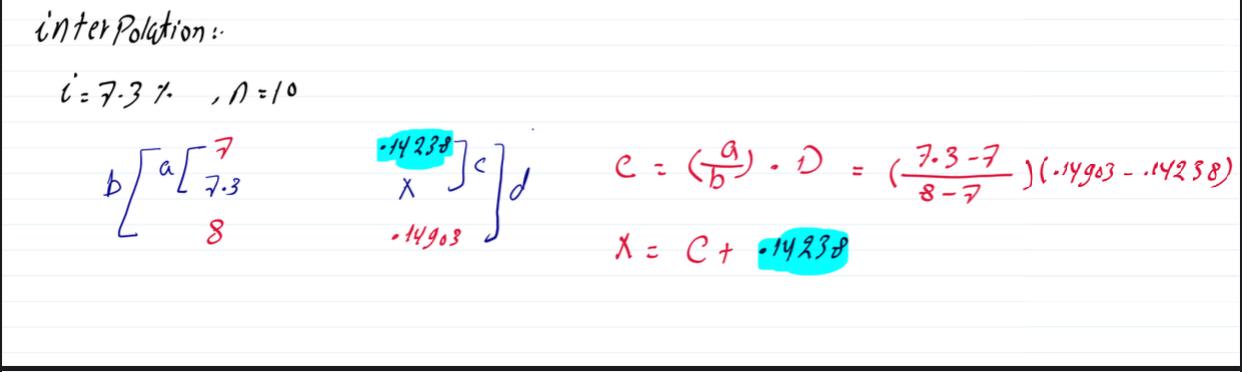 interpolation:
i = 7.3 % , n = 10
b [ a [ 7 .14238 ] c ] d
7.3 x
8 .14903
C = (a/b) . D = (7.3-7 / 8-7)(.14903 - .14238)
X = C + .14238